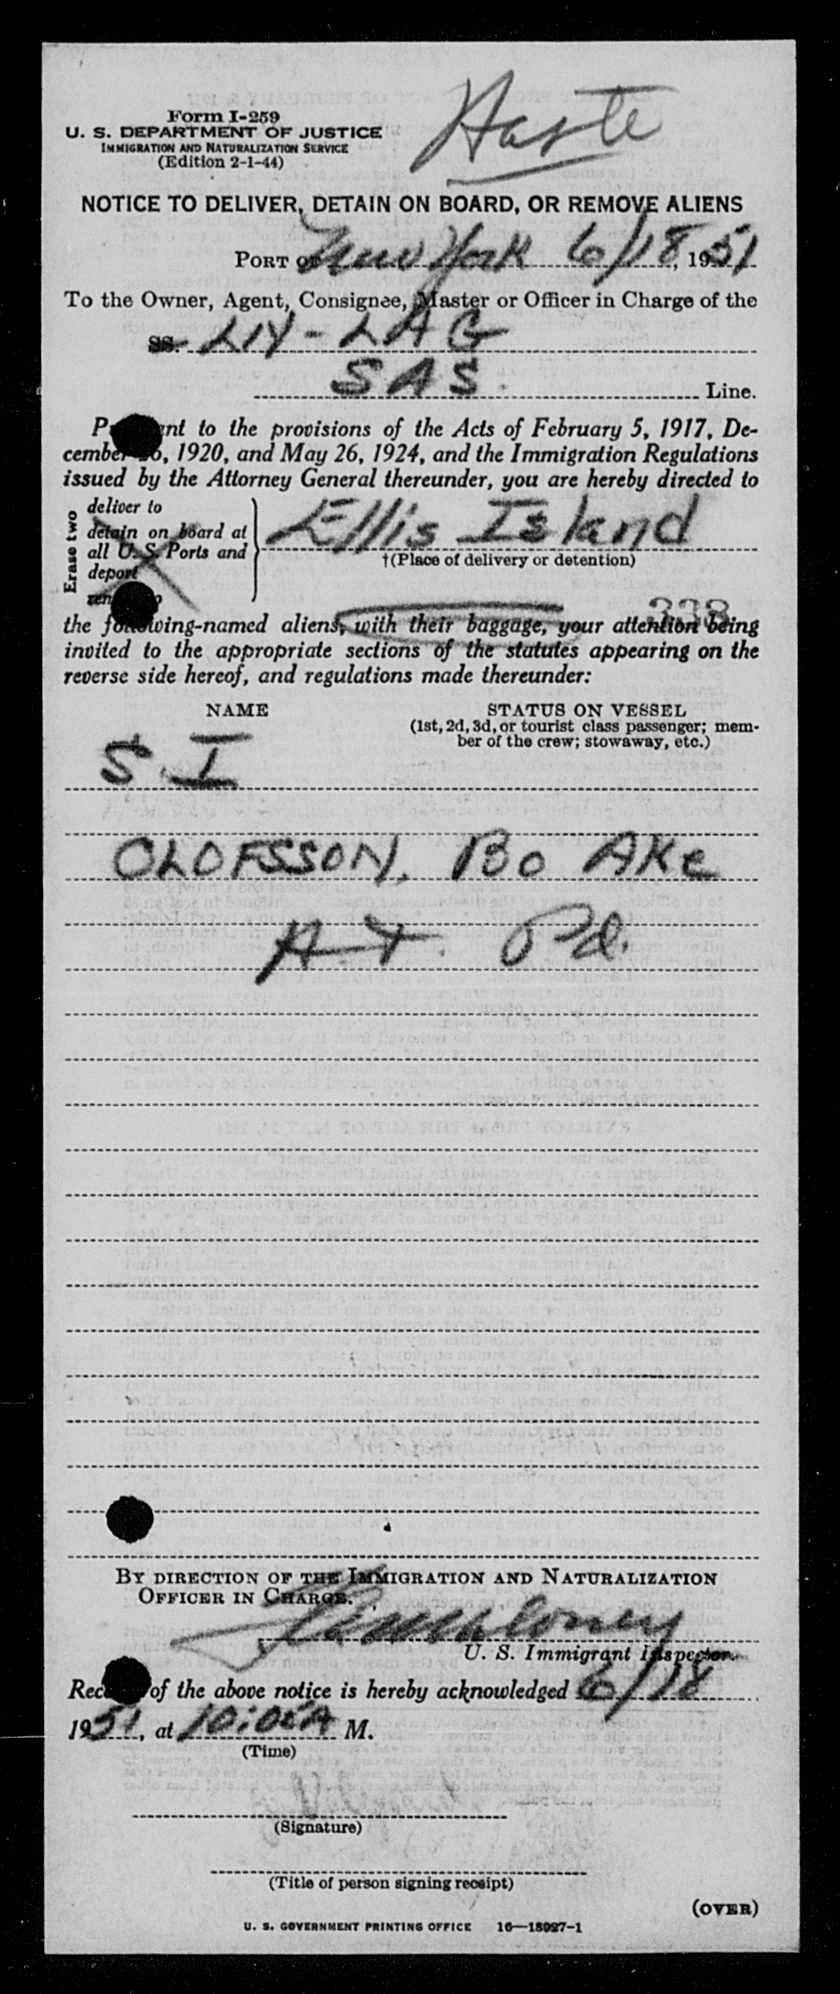 Haste
Form I-259
U. S. DEPARTMENT OF JUSTICE
IMMIGRATION AND NATURALIZATION SERVICE
(Edition 2-1-44)
NOTICE TO DELIVER, DETAIN ON BOARD, OR REMOVE ALIENS
PORT OF New York 6/18, 1951
To the Owner, Agent, Consignee, Master or Officer in Charge of the
SS. LIY-LAG
SAS Line.
to the provisions of the Acts of February 5, 1917, De-
cember 26, 1920, and May 26, 1924, and the Immigration Regulations
issued by the Attorney General thereunder, you are hereby directed to
Erase two
deliver to
detain on board at
all U.S. Ports and
deport
Ellis Island
†(Place of delivery or detention)
338
the following-named aliens, with their baggage, your attention being
invited to the appropriate sections of the statutes appearing on the
reverse side hereof, and regulations made thereunder:
NAME STATUS ON VESSEL
(1st, 2d, 3d, or tourist class passenger; mem-
ber of the crew; stowaway, etc.)
S.I
OLOFSSON, Bo Ake
Pd.
BY DIRECTION OF THE IMMIGRATION AND NATURALIZATION
OFFICER IN CHARGE.
U. S. Immigrant Inspector.
of the above notice is hereby acknowledged 6/18
1951, at 10:05A M.
(Time)
(Signature)
(Title of person signing receipt)
(OVER)
U. S. GOVERNMENT PRINTING OFFICE 16—18927-1